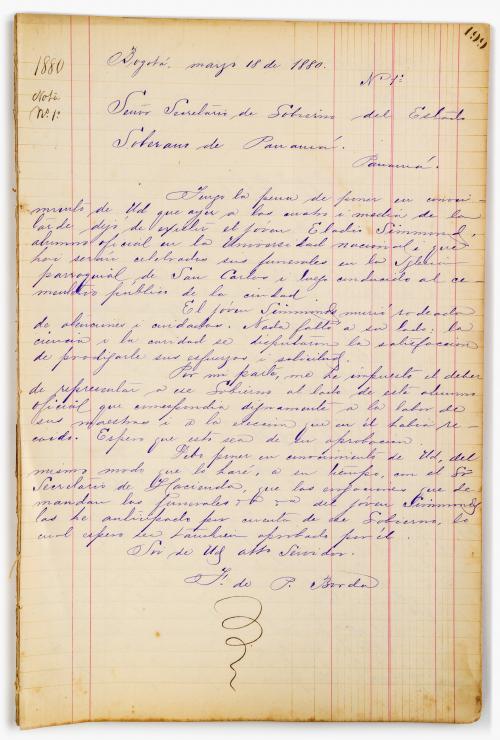 199
1880
Nota
Nº 1º
Bogotá. marzo 18 de 1880.
Nº 1º
Señor Secretario de Gobierno del Estado
Soberano de Panamá.
Panamá.
Tengo la pena de poner en conoci-
miento de Ud que ayer a las cuatro i media de la
tarde dejó de existir el jóven Eladio Simmonds,
alumno oficial en la Universidad nacional, i que
hoi serán celebrados sus funerales en la Iglesia
parroquial de San Carlos i luego conducido al ce-
menterio público de la ciudad.
El jóven Simmonds murió rodeado
de atenciones i cuidados. Nada faltó a su lado: la
ciencia i la caridad se disputaron la satisfaccion
de prodigarle sus esfuerzos i solicitud.
Por mi parte, me he impuesto el deber
de representar a ese Gobierno al lado de este alumno
oficial que correspondia dignamente a la labor de
sus maestros i a la eleccion que en él habia re-
caido. Espero que esto sea de su aprobacion.
Debo poner en conocimiento de Ud, del
mismo modo que lo haré, a su tiempo, con el Sr
Secretario de Hacienda, que las erogaciones que de-
mandan los funerales del jóven Simmonds
las he anticipado por cuenta de ese Gobierno, lo
cual espero sea tambien aprobado por él.
Soi de Ud atto Servidor.
F. de P. Borda